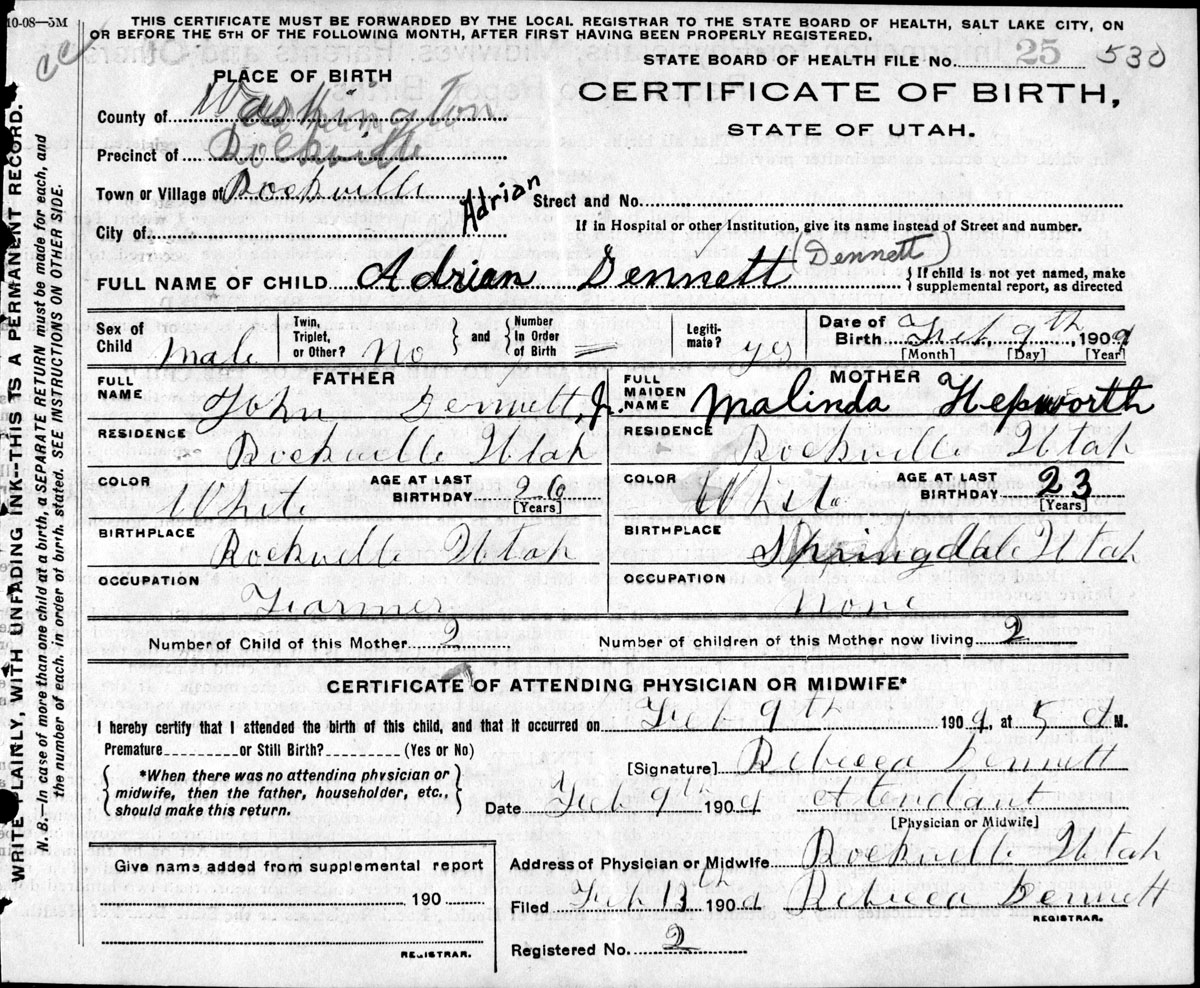 10-08—5M
THIS CERTIFICATE MUST BE FORWARDED BY THE LOCAL REGISTRAR TO THE STATE BOARD OF HEALTH, SALT LAKE CITY, ON
OR BEFORE THE 5TH OF THE FOLLOWING MONTH, AFTER FIRST HAVING BEEN PROPERLY REGISTERED.
STATE BOARD OF HEALTH FILE No. 25 530
PLACE OF BIRTH
CERTIFICATE OF BIRTH,
STATE OF UTAH.
County of Washington
Precinct of Rockville
Town or Village of Rockville
Adrian
Street and No.
City of
If in Hospital or other Institution, give its name instead of Street and number.
FULL NAME OF CHILD Adrian Dennett (Dennett)
{ If child is not yet named, make
supplemental report, as directed
Sex of Child Male
Twin, Triplet, or Other? No } and { Number in Order of Birth =
Legiti-mate? yes
Date of Birth Feb. 9th, 1909
[Month] [Day] [Year]
FATHER
FULL NAME John Dennett, Jr.
RESIDENCE Rockville Utah
COLOR White
AGE AT LAST BIRTHDAY 26 [Years]
BIRTHPLACE Rockville Utah
OCCUPATION
Farmer
MOTHER
FULL MAIDEN NAME Malinda Hepworth
RESIDENCE Rockville Utah
COLOR White
AGE AT LAST BIRTHDAY 23 [Years]
BIRTHPLACE Springdale Utah
OCCUPATION
None
Number of Child of this Mother 2 Number of children of this Mother now living 2
CERTIFICATE OF ATTENDING PHYSICIAN OR MIDWIFE*
I hereby certify that I attended the birth of this child, and that it occurred on Feb 9th 1909, at 5 a M.
Premature or Still Birth? (Yes or No)
{ *When there was no attending physician or
midwife, then the father, householder, etc.,
should make this return. }
[Signature] Rebecca Dennett
Date Feb 9th 1909 Atendant
[Physician or Midwife]
Give name added from supplemental report
190
REGISTRAR.
Address of Physician or Midwife Rockville Utah
Filed Feb 13th 1909 Rebecca Dennett
REGISTRAR.
Registered No. 2
WRITE PLAINLY, WITH UNFADING INK—THIS IS A PERMANENT RECORD.
N. B.—In case of more than one child at a birth, a SEPARATE RETURN must be made for each, and
the number of each, in order of birth, stated. SEE INSTRUCTIONS ON OTHER SIDE.